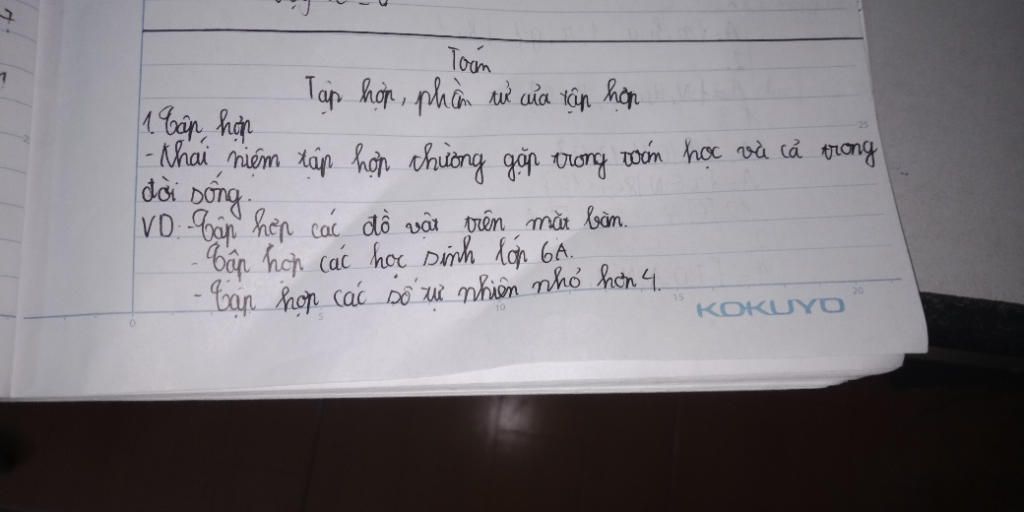 Toán
Tập hợp, phần tử của tập hợp
1. Tập hợp
- Khái niệm tập hợp thường gặp trong toán học và cả trong
đời sống.
VD: - Tập hợp các đồ vật trên mặt bàn.
- Tập hợp các học sinh lớp 6A.
- Tập hợp các số tự nhiên nhỏ hơn 4.
25
0 5 10 15 20
KOKUYO